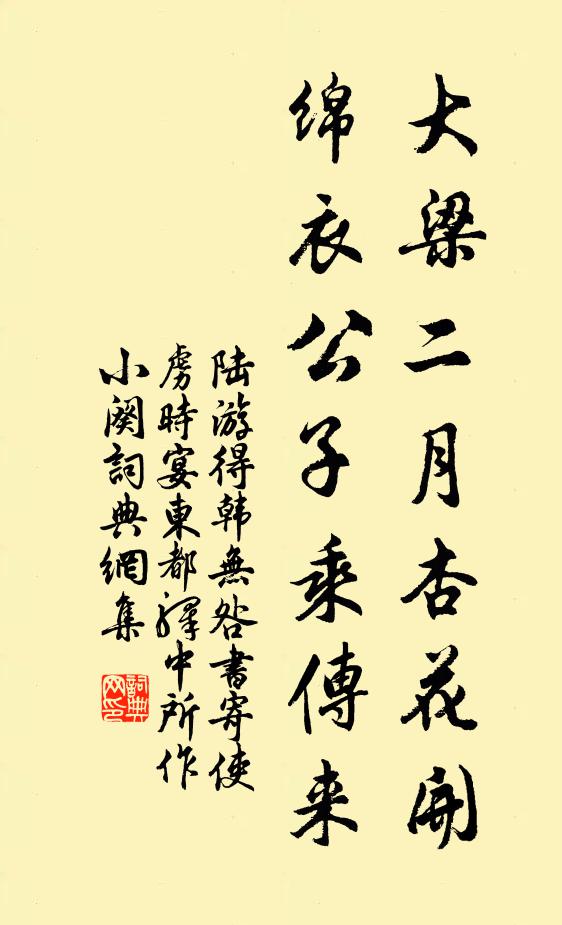 大梁二月杏花開
绵衣公子乘傳来
陆游得韩無咎書寄使
虜時宴東都驛中所作
小闋詞典網集
詞典
网印